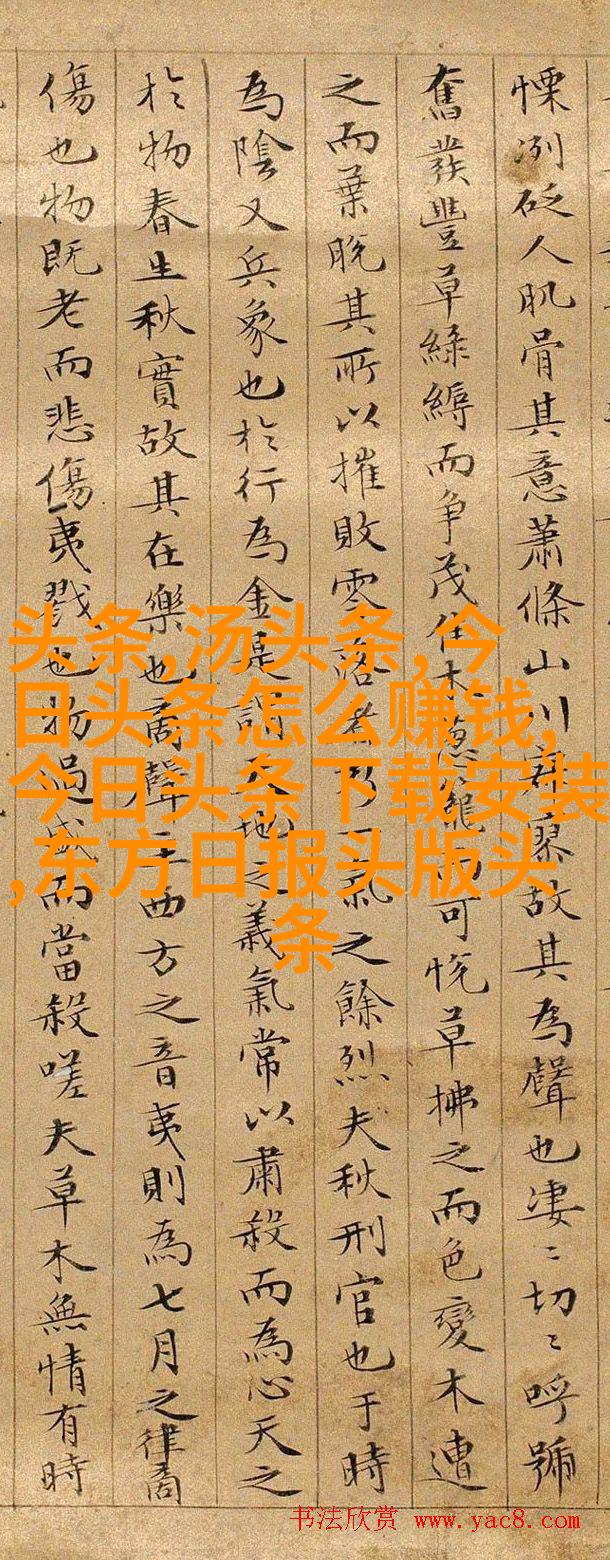 慄冽砭人肌骨其意蕭條山川寂寥故其為聲也淒〻切〻呼號
奮發豐草綠縟而争茂佳木葱蘢而可悅草拂之而色變木遭
之而葉脫其所以摧敗零落者乃一氣之餘烈夫秋刑官也于時
為陰又兵象也於行為金是謂天地之義氣常以肅殺而為心天之
於物春生秋實故其在樂也商聲主西方之音夷則為七月之律商
傷也物既老而悲傷夷戮也物過盛而當殺嗟夫草木無情有時
头条,汤头条,今
日头条怎么赚钱,
今日头条下载安装
,东方日报头版头
条
书法欣赏 www.yac8.com